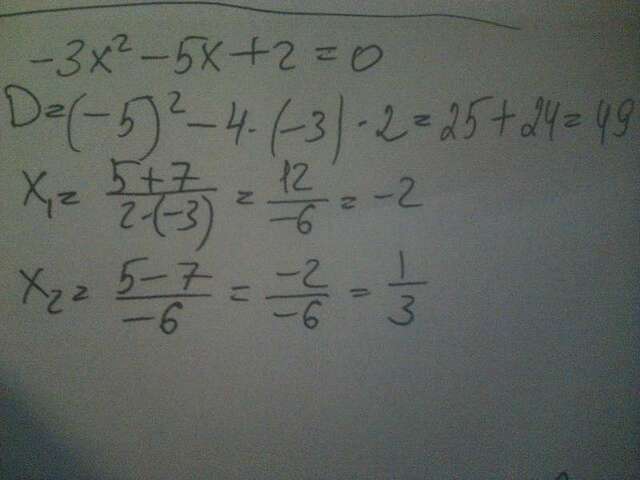 -3x² - 5x + 2 = 0
D = (-5)² - 4 · (-3) · 2 = 25 + 24 = 49
x₁ = (5 + 7)/(2 · (-3)) = 12/(-6) = -2
x₂ = (5 - 7)/(-6) = (-2)/(-6) = 1/3